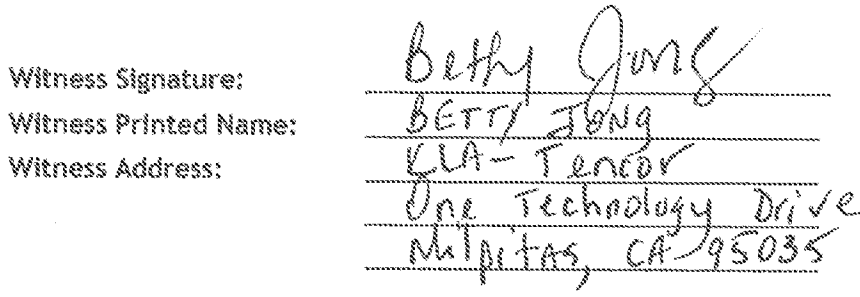 Witness Signature: Betty Jong
Witness Printed Name: BETTY JONG
Witness Address: KLA-Tencor
One Technology Drive
Milpitas, CA 95035